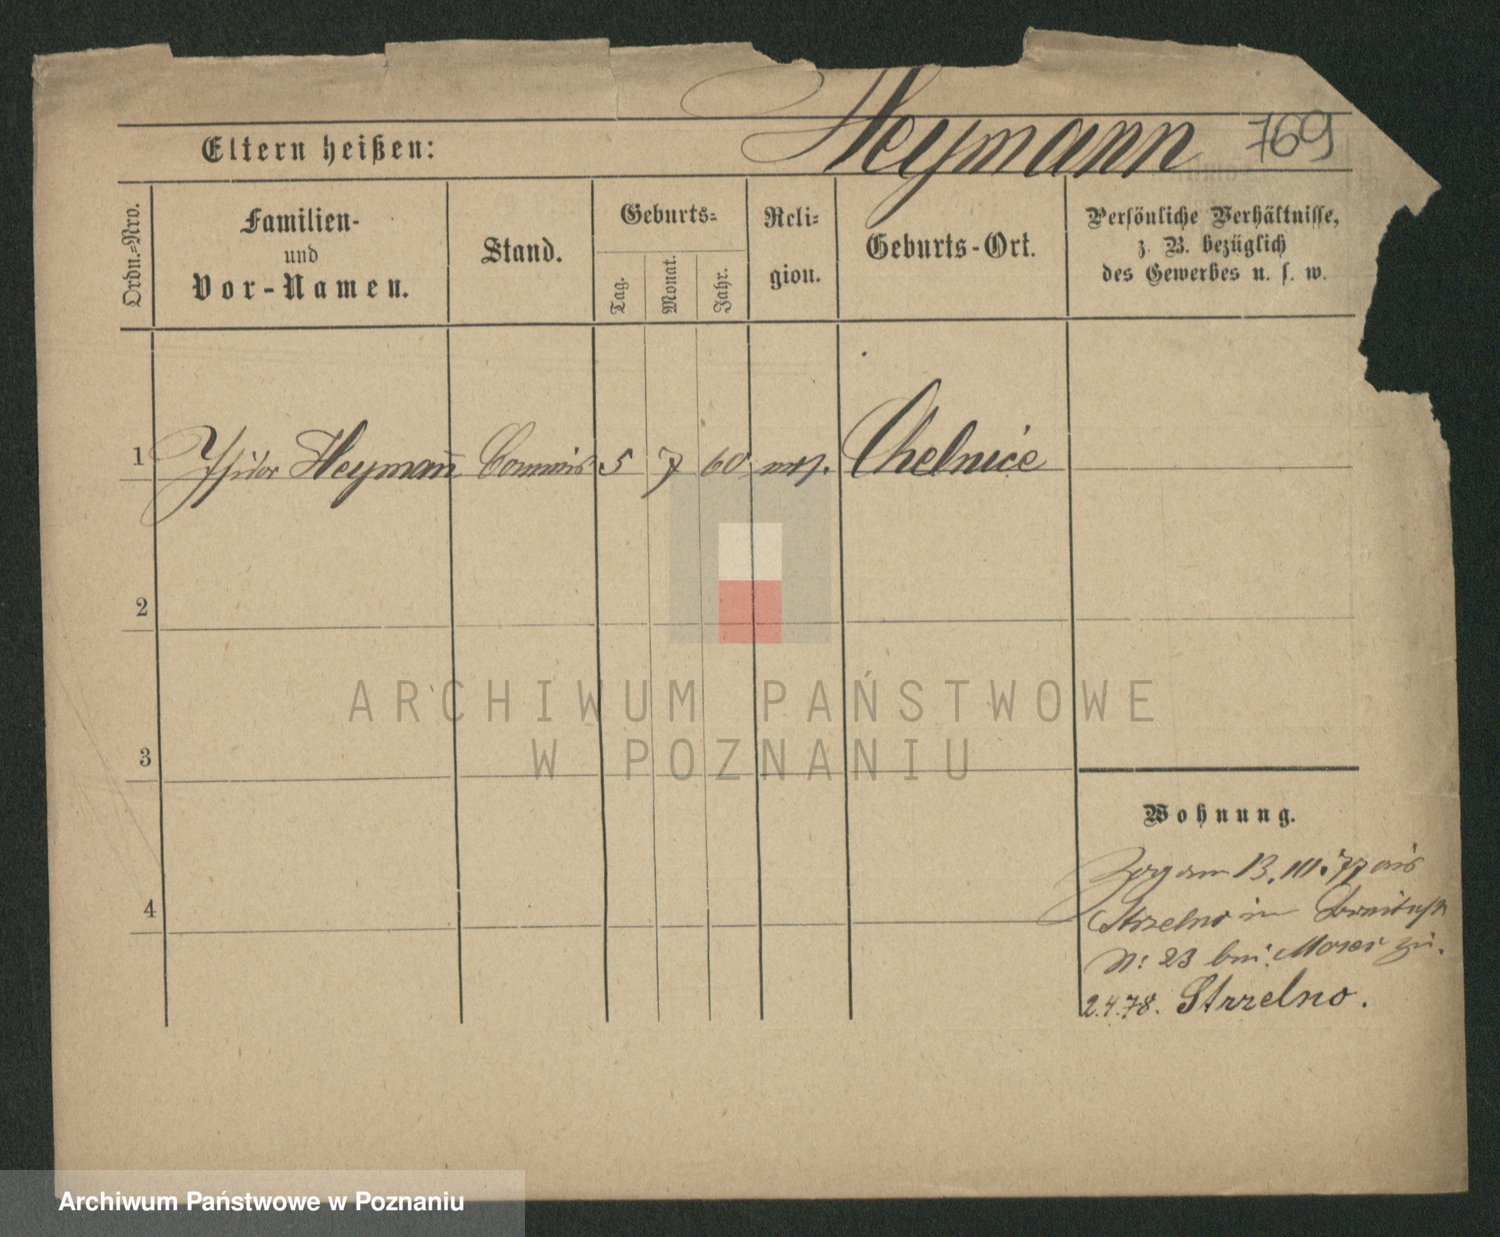 Heymann 769
Eltern heißen:
Ordn.-Nro.
Familien-
und
Vor-Namen.
Stand.
Geburts-
Tag.
Monat.
Jahr.
Reli-
gion.
Geburts-Ort.
Persönliche Verhältnisse,
z. B. bezüglich
des Gewerbes u. s. w.
1 Isidor Heymann Commis 5 7 60 mos. Chelmice
2
3
4
Wohnung.
Zog am 13. III. 77 aus
Strzelno in
N: 23 bei Moses zu.
2.4.78. Strzelno.
ARCHIWUM PAŃSTWOWE
W POZNANIU
Archiwum Państwowe w Poznaniu